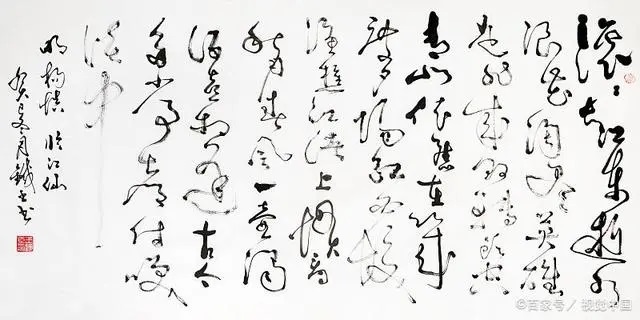 滚滚长江东逝水
浪花淘尽英雄
是非成败转头空
青山依舊在几
度夕陽紅白髮
渔樵江渚上慣看
秋月春风一壶浊
酒喜相逢古今
多少事都付笑
谈中
明楊慎 临江仙
癸夏月書
©百家号／视觉中国